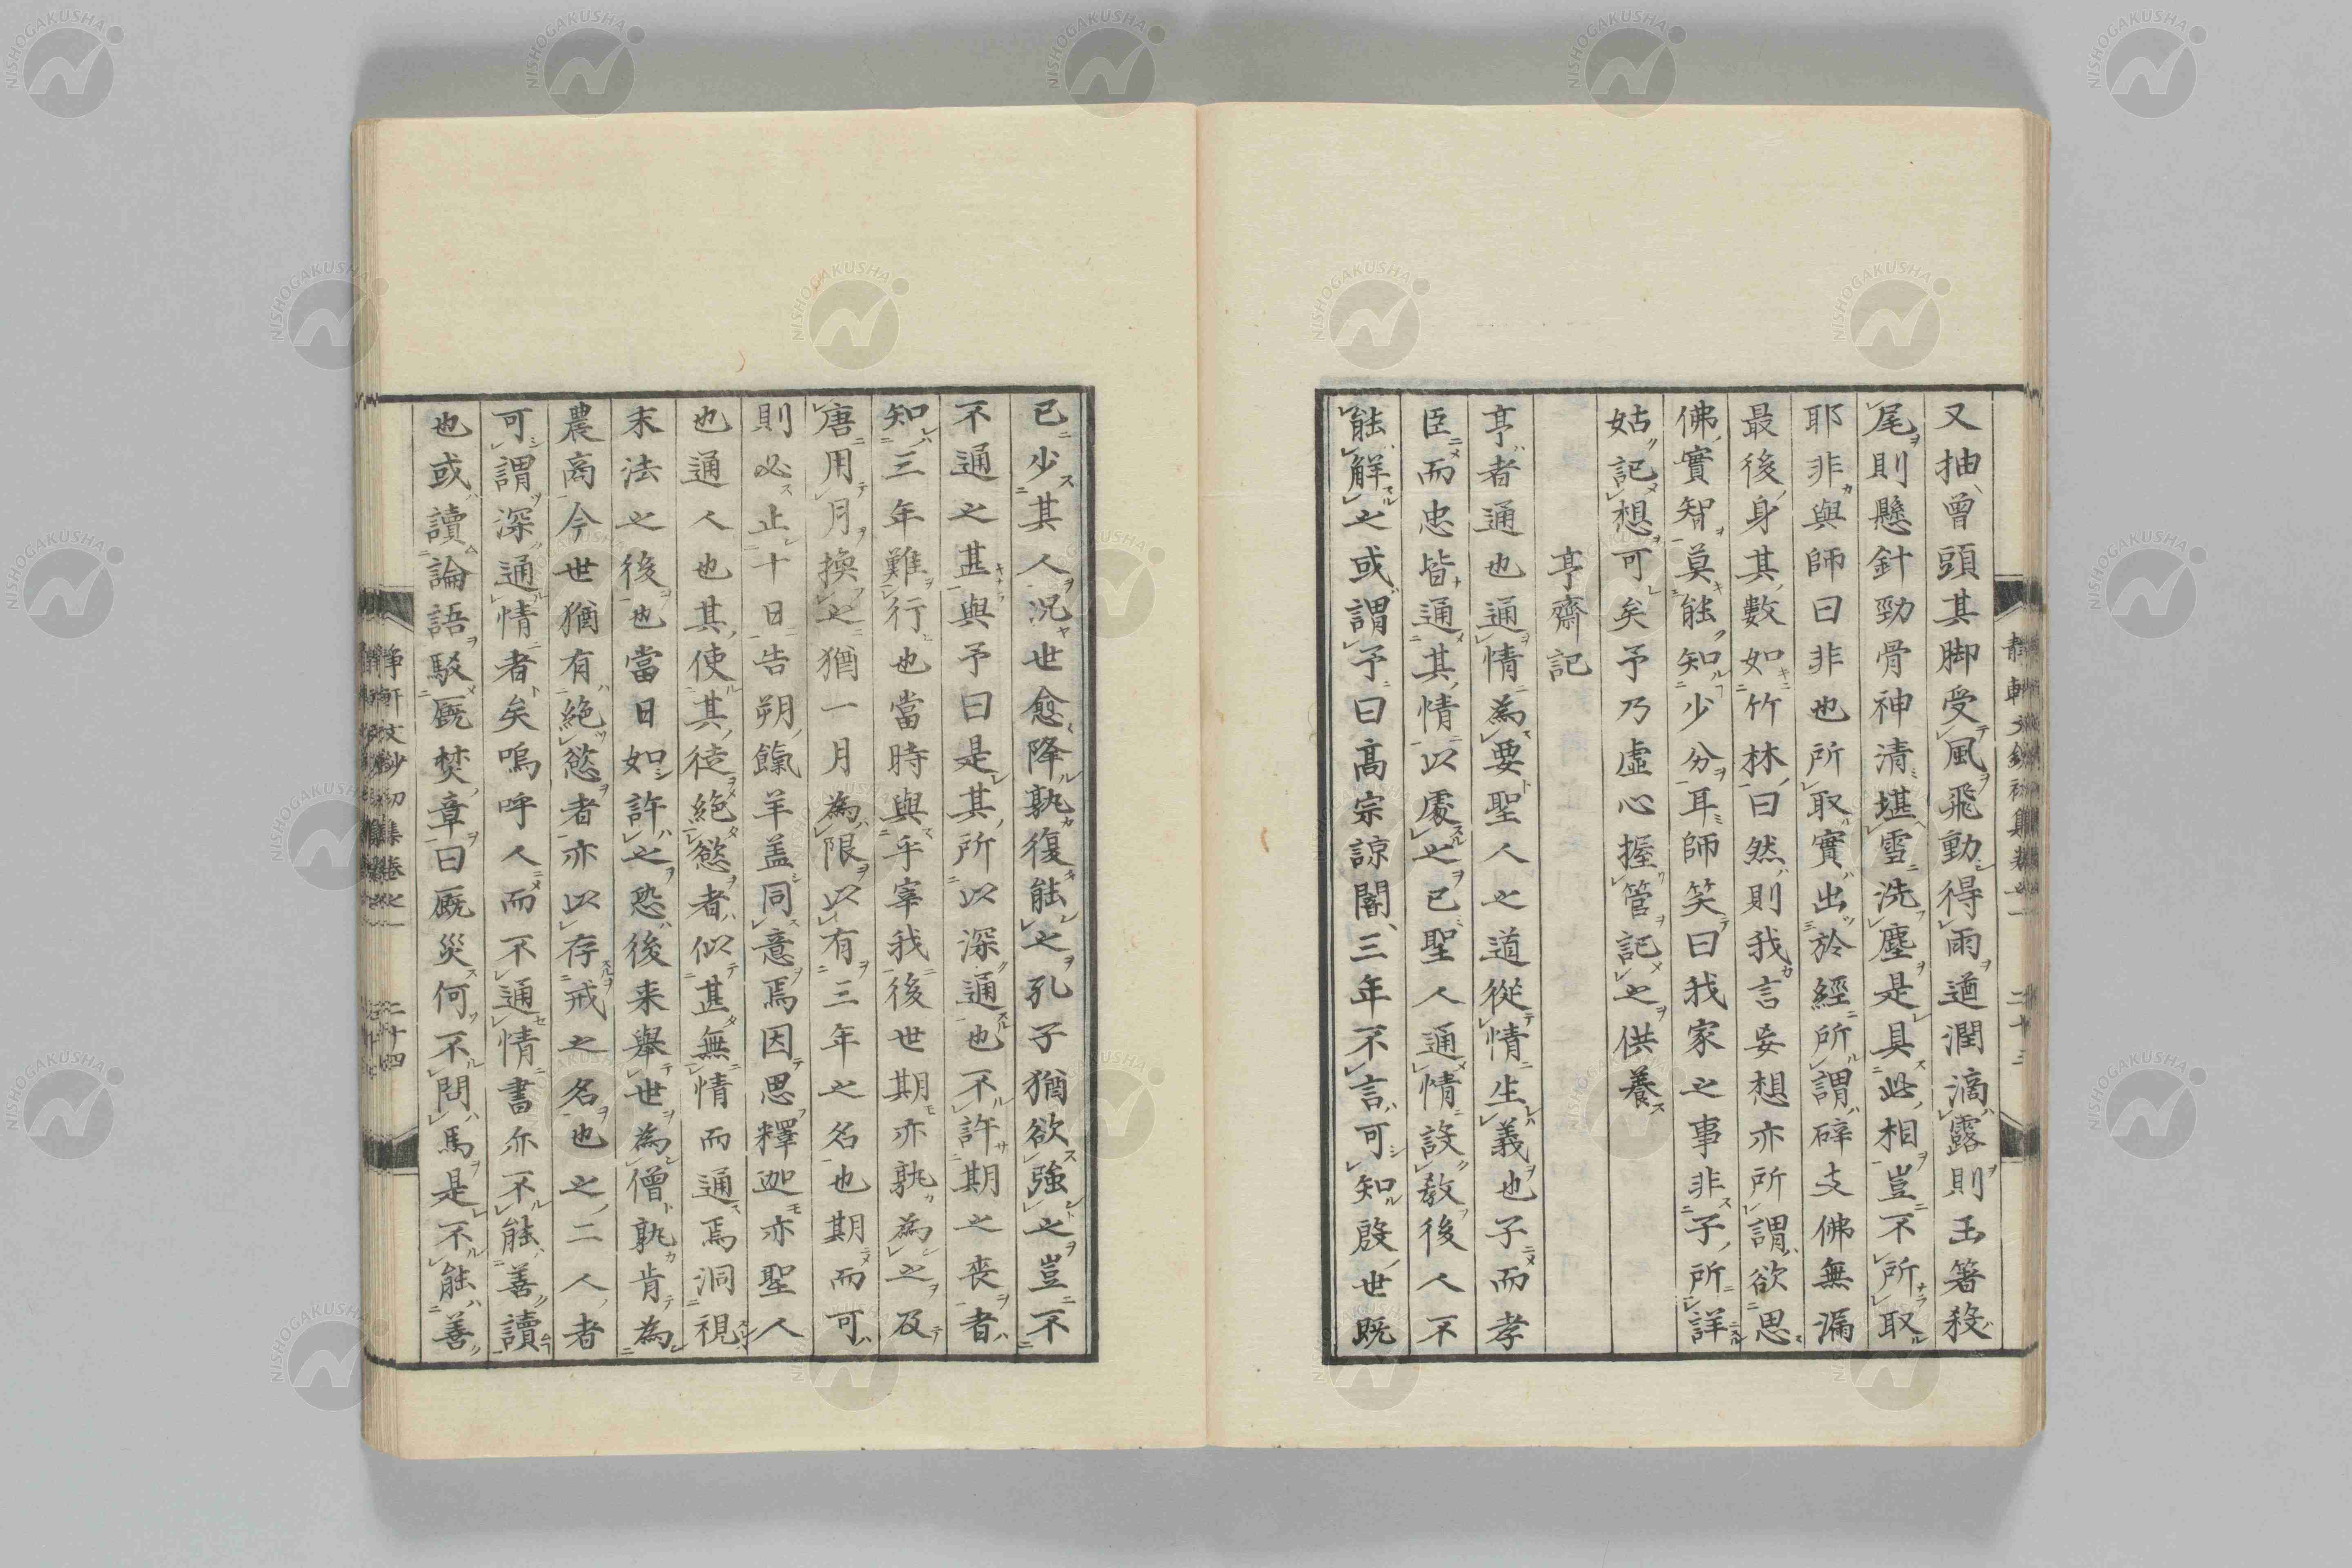 又抽曾頭其脚受風飛動得雨遒潤滴露則玉箸殺
尾則懸針勁骨神清堪雪洗塵是具此相豈不所取
耶非與師曰非也所取實出於經所謂碎支佛無漏
最後身其數如竹林曰然則我言妄想亦所謂欲思
佛實智莫能知少分耳師笑曰我家之事非子所詳
姑記想可矣予乃虛心握管記之供養
亨齋記
亨者通也通情為要聖人之道從情生義也子而孝
臣而忠皆通其情以處之已聖人通情設教後人不
能解之或謂予曰高宗諒闇三年不言可知殷世既
已少其人況世愈降孰復能之孔子猶欲強之豈不
不通之甚與予曰是其所以深通也不許期之喪者
知三年難行也當時與乎宰我後世期亦孰為之及
唐用月換之猶一月為限以有三年之名也期而可
則必止十日告朔餼羊盖同意焉因思釋迦亦聖人
也通人也其使其徒絕慾者似甚無情而通焉洞視
末法之後也當日如許之恐後来舉世為僧孰肯為
農商今世猶有絕慾者亦以存戒之名也之二人者
可謂深通情者矣嗚呼人而不通情書亦不能善讀
也或讀論語駁厩焚章曰厩災何不問馬是不能善
二十四
NISHOGAKUSHA